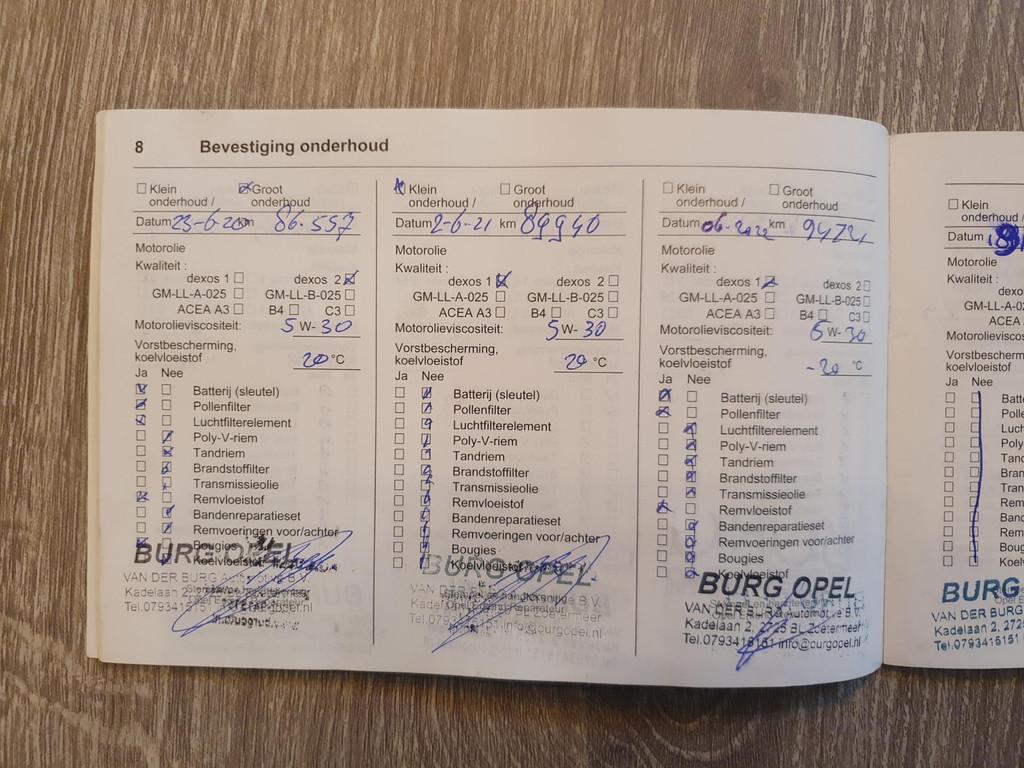 8 Bevestiging onderhoud
☐ Klein onderhoud / ☒ Groot onderhoud
Datum 23-6-20 km 86.557
Motorolie
Kwaliteit :
dexos 1 ☐ dexos 2 ☒
GM-LL-A-025 ☐ GM-LL-B-025 ☐
ACEA A3 ☐ B4 ☐ C3 ☐
Motorolieviscositeit: 5 W- 30
Vorstbescherming,
koelvloeistof 20 °C
Ja Nee
☒ ☐ Batterij (sleutel)
☒ ☐ Pollenfilter
☒ ☐ Luchtfilterelement
☐ ☒ Poly-V-riem
☐ ☒ Tandriem
☐ ☒ Brandstoffilter
☐ ☒ Transmissieolie
☒ ☐ Remvloeistof
☐ ☒ Bandenreparatieset
☐ ☒ Remvoeringen voor/achter
☒ ☐ Bougies
☐ ☒ Koelvloeistof
BURG OPEL
VAN DER BURG Automotive B.V.
Kadelaan 2,
Tel.0793415151
☒ Klein onderhoud / ☐ Groot onderhoud
Datum 2-6-21 km 89940
Motorolie
Kwaliteit :
dexos 1 ☒ dexos 2 ☐
GM-LL-A-025 ☐ GM-LL-B-025 ☐
ACEA A3 ☐ B4 ☐ C3 ☐
Motorolieviscositeit: 5 W- 30
Vorstbescherming,
koelvloeistof 20 °C
Ja Nee
☐ ☒ Batterij (sleutel)
☐ ☒ Pollenfilter
☐ ☒ Luchtfilterelement
☐ ☒ Poly-V-riem
☐ ☒ Tandriem
☐ ☒ Brandstoffilter
☐ ☒ Transmissieolie
☐ ☒ Remvloeistof
☐ ☒ Bandenreparatieset
☐ ☒ Remvoeringen voor/achter
☐ ☒ Bougies
☐ ☒ Koelvloeistof
BURG OPEL
VAN DER B.V.
Zoetermeer
info@burgopel.nl
☐ Klein onderhoud / ☐ Groot onderhoud
Datum 06-2022 km
Motorolie
Kwaliteit :
dexos 1 ☒ dexos 2 ☐
GM-LL-A-025 ☐ GM-LL-B-025 ☐
ACEA A3 ☐ B4 ☐ C3 ☐
Motorolieviscositeit: 5 W- 30
Vorstbescherming,
koelvloeistof -20 °C
Ja Nee
☒ ☐ Batterij (sleutel)
☒ ☐ Pollenfilter
☐ ☒ Luchtfilterelement
☐ ☒ Poly-V-riem
☐ ☒ Tandriem
☐ ☒ Brandstoffilter
☐ ☒ Transmissieolie
☒ ☐ Remvloeistof
☐ ☒ Bandenreparatieset
☐ ☒ Remvoeringen voor/achter
☐ ☒ Bougies
☐ ☒ Koelvloeistof
BURG OPEL
VAN DER BURG Automotive B.V.
Kadelaan 2, 2725 BL Zoetermeer
Tel.0793415151 info@burgopel.nl
☐ Klein
onderhoud /
Datum
Motorolie
Kwaliteit :
GM-LL-A-0
ACEA
Motorolieviscos
Vorstbescherm
koelvloeistof
Ja Nee
☐ ☐ Batte
☐ ☐ Polle
☐ ☐ Luch
☐ ☐ Poly
☐ ☐ Tand
☐ ☐ Bran
☐ ☐ Tran
☐ ☐ Rem
☐ ☐ Band
☐ ☐ Rem
☐ ☐ Boug
☐ ☐ Koel
BURG
VAN DER BURG
Kadelaan 2, 272
Tel.0793415151